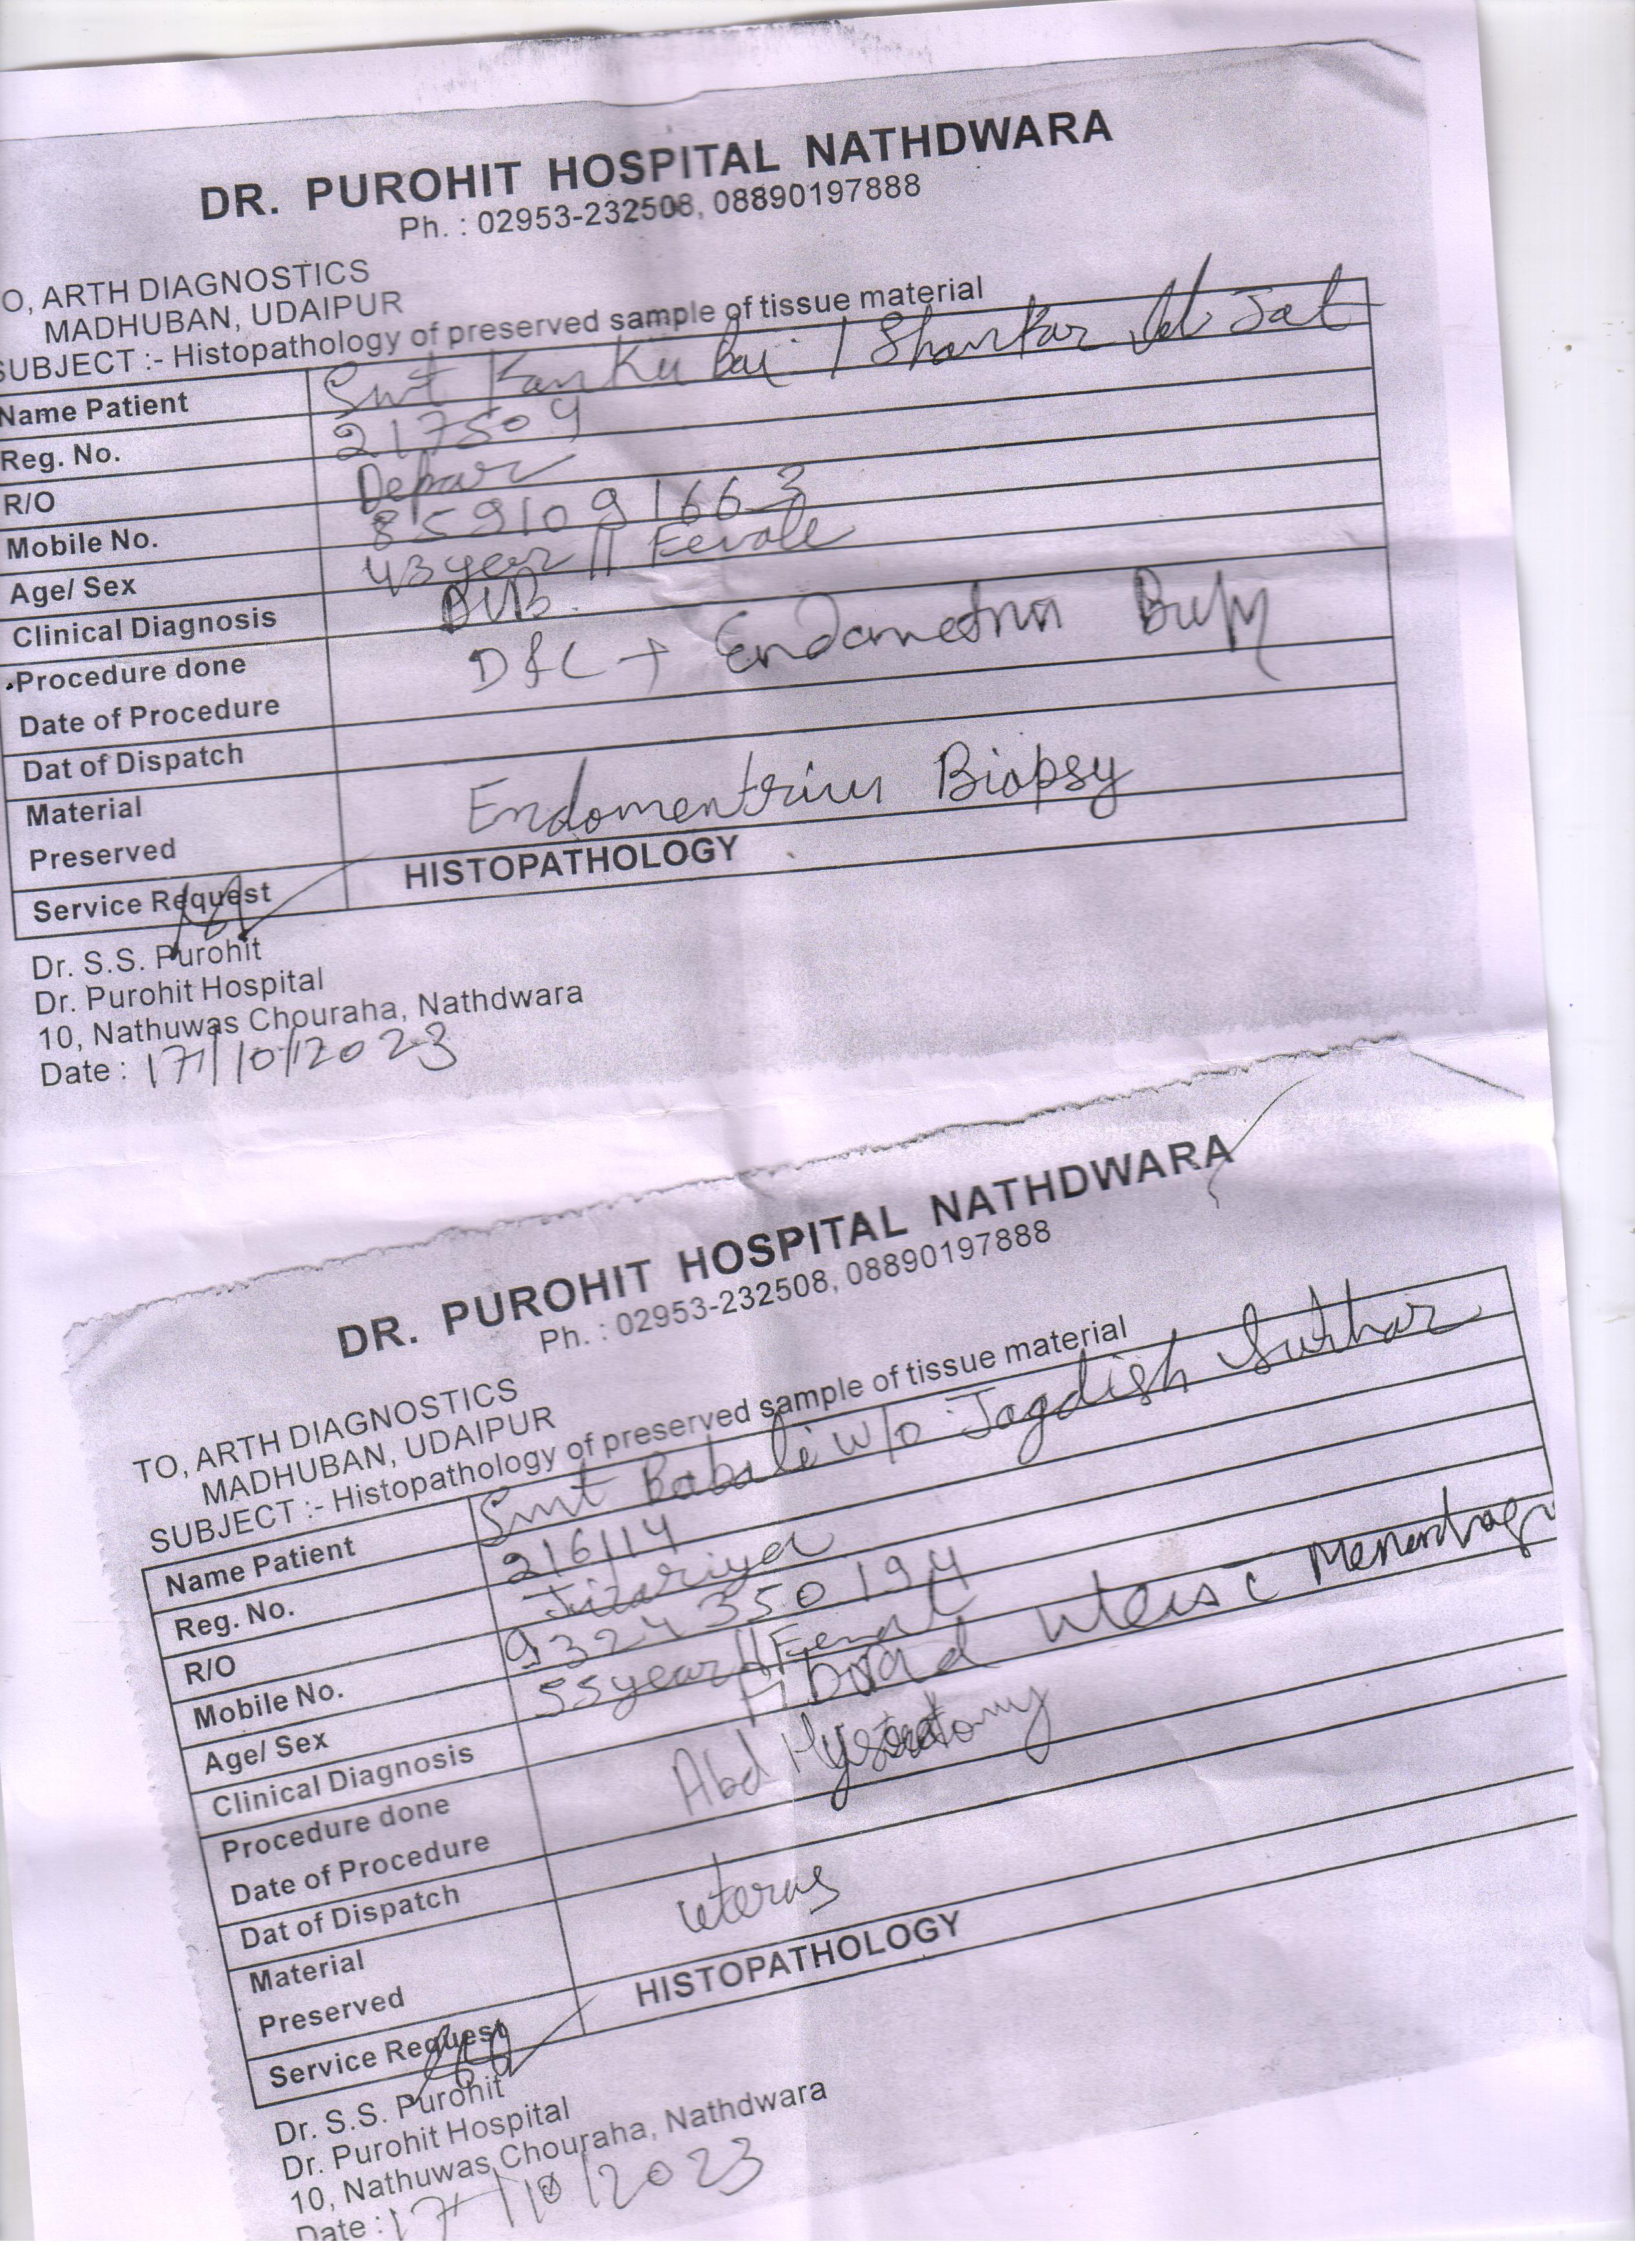 DR. PUROHIT HOSPITAL NATHDWARA
Ph. : 02953-232508, 08890197888
O, ARTH DIAGNOSTICS
MADHUBAN, UDAIPUR
SUBJECT :- Histopathology of preserved sample of tissue material
Name Patient Smt Kanku bai / Shankar lal Jat
Reg. No. 217504
R/O Depur
Mobile No. 8591091663
Age/ Sex 43 year || Female
Clinical Diagnosis DUB
Procedure done D&C +
Date of Procedure
Dat of Dispatch
Material Endomentrium Biopsy
Preserved
Service Request HISTOPATHOLOGY
Dr. S.S. Purohit
Dr. Purohit Hospital
10, Nathuwas Chouraha, Nathdwara
Date : 17/10/2023
DR. PUROHIT HOSPITAL NATHDWARA
Ph. : 02953-232508, 08890197888
TO, ARTH DIAGNOSTICS
MADHUBAN, UDAIPUR
SUBJECT :- Histopathology of preserved sample of tissue material
Name Patient Smt Babali w/o Jagdish Suthar
Reg. No. 216114
R/O
Mobile No. 9324350194
Age/ Sex 55 year ||
Clinical Diagnosis uterus c
Procedure done Abd
Date of Procedure
Dat of Dispatch
Material uterus
Preserved
Service Request HISTOPATHOLOGY
Dr. S.S. Purohit
Dr. Purohit Hospital
10, Nathuwas Chouraha, Nathdwara
Date : 17/10/2023